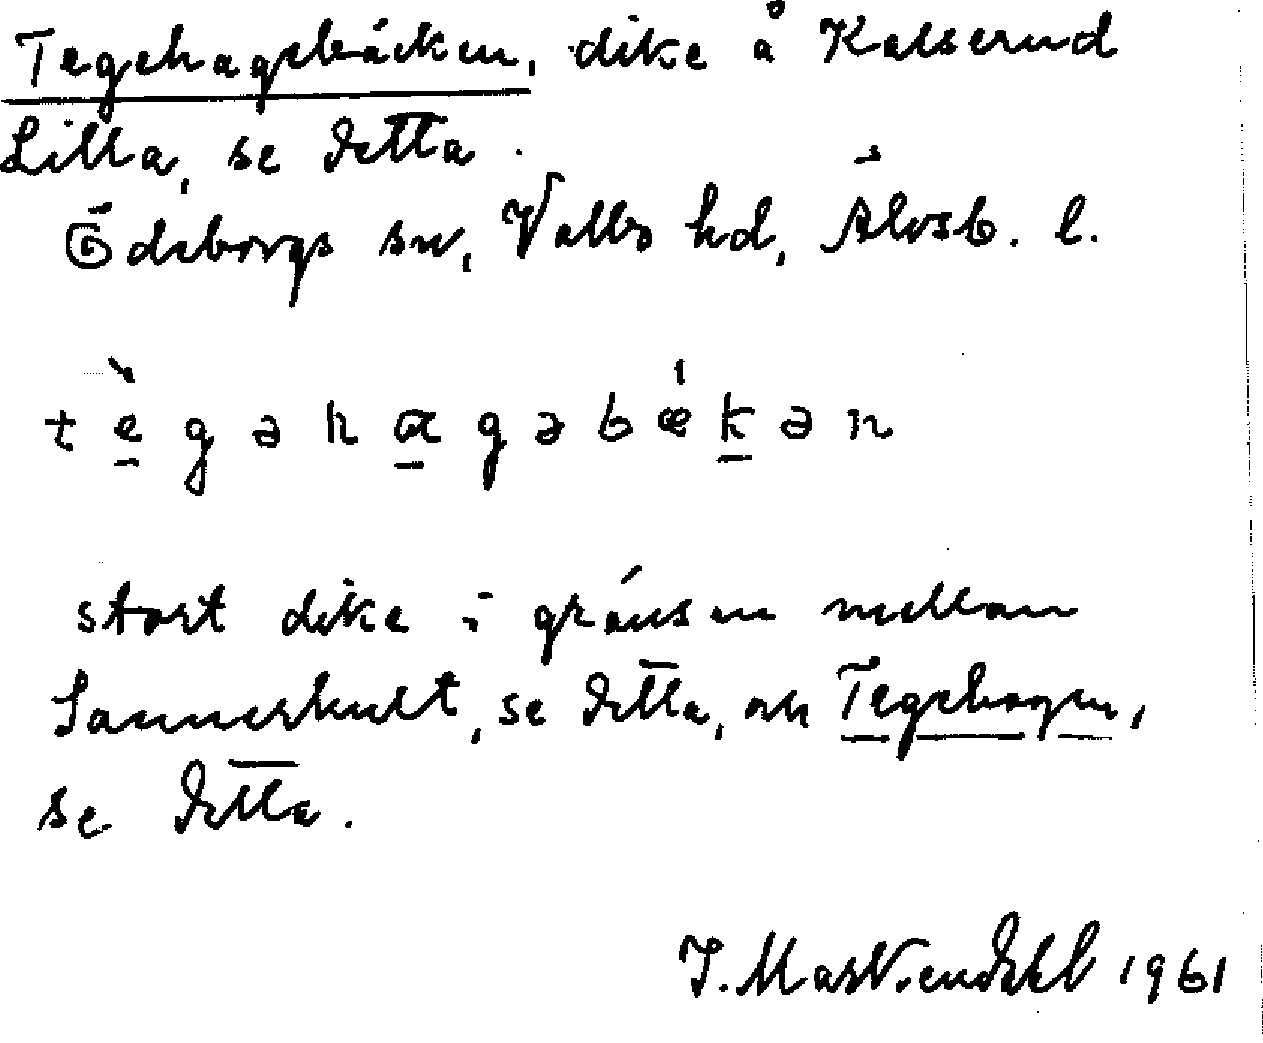 Tegehagebäcken, dike å Kalserud
Lilla, se detta.
Ödeborgs sn, Valbo hd, Älvsb. l.
tègəhagəbǽkən
stort dike i gränsen mellan
Sannerkult, se detta, och Tegehagen,
se detta.
J. 1961